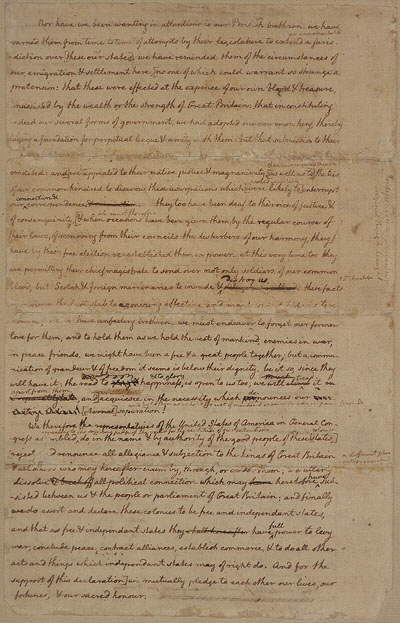 Nor have we been wanting in attentions to our British brethren. we have
warned them from time to time of attempts by their legislature to extend a juris-
-diction over these our states. we have reminded them of the circumstances of
our emigration & settlement here, no one of which could warrant so strange a
pretension: that these were effected at the expence of our own blood & treasure,
unassisted by the wealth or the strength of Great Britain: that in constituting
indeed our several forms of government, we had adopted one common king, thereby
laying a foundation for perpetual league & amity with them: but that submission to their
and we appealed to their native justice & magnanimity as well as to the ties
of our common kindred to disavow these usurpations which were likely to interrupt
connection &
correspondence they too have been deaf to the voice of justice &
of consanguinity, & when occasions have been given them, by the regular course of
their laws, of removing from their councils the disturbers of our harmony, they
have by their free election re-established them in power. at this very time too they
are permitting their chief magistrate to send over not only soldiers of our common
blood, but Scotch & foreign mercenaries to invade &
destroy us
these facts
have given the last stab to agonizing affection, and
unfeeling brethren. we must endeavor to forget our former
love for them, and to hold them as we hold the rest of mankind, enemies in war,
in peace friends. we might have been a free & a great people together; but a commu-
nication of grandeur & of freedom it seems is below their dignity. be it so, since they
will have it: the road to happiness is open to us too; we will it in
and acquiesce in the necessity which our
eternal separation!
We therefore the representatives of the United States of America in General Con-
gress assembled, do in the name & by authority of the good people of these states
reject and renounce all allegiance & subjection to the kings of Great Britain
& all others who may hereafter claim by, through, or under them; we utterly
dissolve all political connection which may heretofore have sub-
-sisted between us & the people or parliament of Great Britain; and finally
we do assert and declare these colonies to be free and independant states,
and that as free & independant states they have full power to levy
war, conclude peace, contract alliances, establish commerce, & to do all other
acts and things which independant states may of right do. And for the
support of this declaration we mutually pledge to each other our lives, our
fortunes, & our sacred honour.